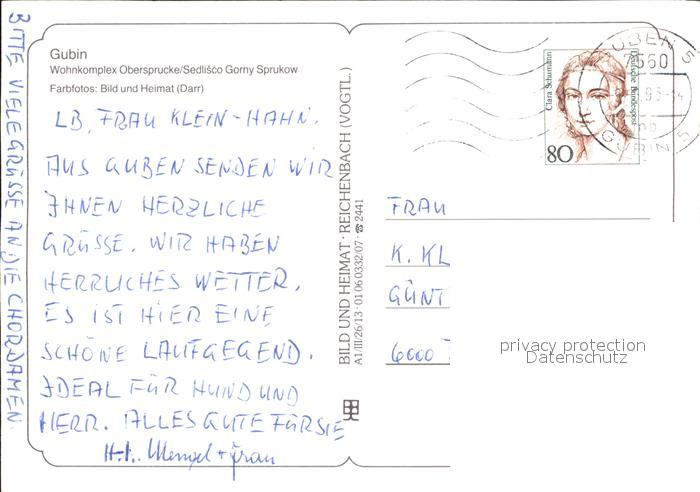 Gubin
Wohnkomplex Obersprucke/Sedlišćo Gorny Sprukow
Farbfotos: Bild und Heimat (Darr)
LB. FRAU KLEIN-HAHN.
AUS GUBEN SENDEN WIR
IHNEN HERZLICHE
GRÜSSE. WIR HABEN
HERRLICHES WETTER.
ES IST HIER EINE
SCHÖNE LAUFGEGEND.
IDEAL FÜR HUND UND
HERR. ALLES GUTE FÜR SIE
H.-L. Mengel + Frau
BITTE VIELE GRÜSSE AN DIE CHORDAMEN.
BILD UND HEIMAT · REICHENBACH (VOGTL.)
A1/III/26/13 · 01 06 0332/07 · ☎ 2441
Clara Schumann
Deutsche Bundespost
80
GUBEN 5
7560
GUBIN 5
FRAU
K. KL
GÜNT
6000
privacy protection
Datenschutz